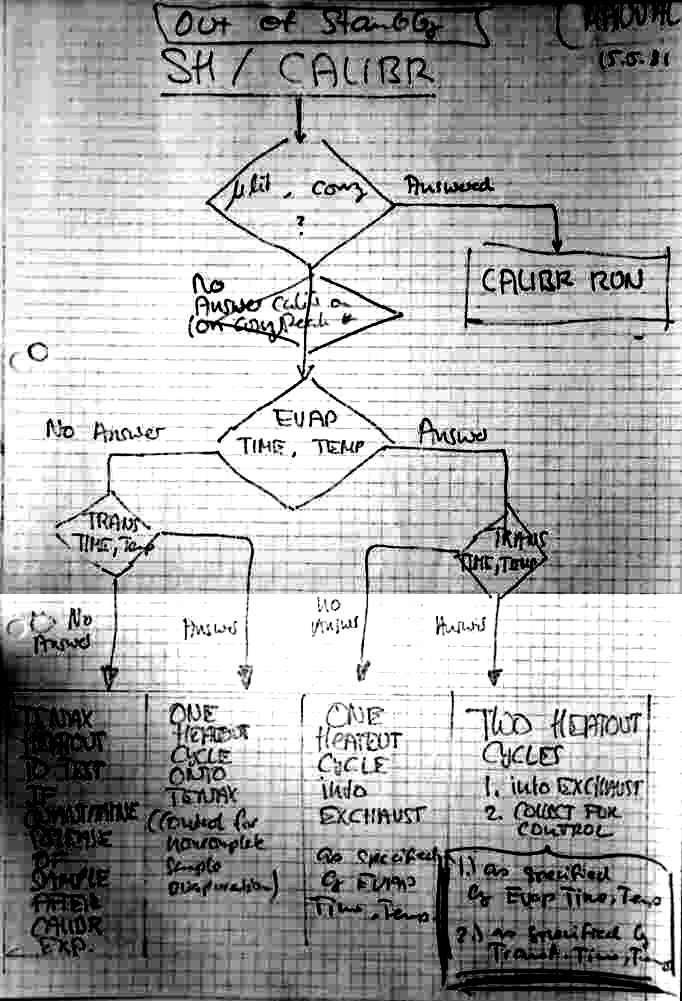 Out of Standby
MANUAL
15.5.81
SH / CALIBR
µlit, conz
?
Answered
CALIBR RUN
No
Answer
EVAP
TIME, TEMP
No Answer
Answer
TRANS
TIME, Temp
TRANS
TIME, Temp
No
Answer
Answer
no
Answer
Answer
TENAX
HEATOUT
TO TEST
IF
QUANTITATIVE
RELEASE
OF
SAMPLE
AFTER
CALIBR
EXP.
ONE
HEATOUT
CYCLE
ONTO
TENAX
(Control for
noncomplete
sample
evaporation)
ONE
HEATOUT
CYCLE
into
EXCHAUST
as specified
by EVAP
Time, Temp.
TWO HEATOUT
CYCLES
1. into EXCHAUST
2. COLLECT FOR
CONTROL
1.) as specified
by Evap Time, Temp
2.) as specified by
Transf. Time, T